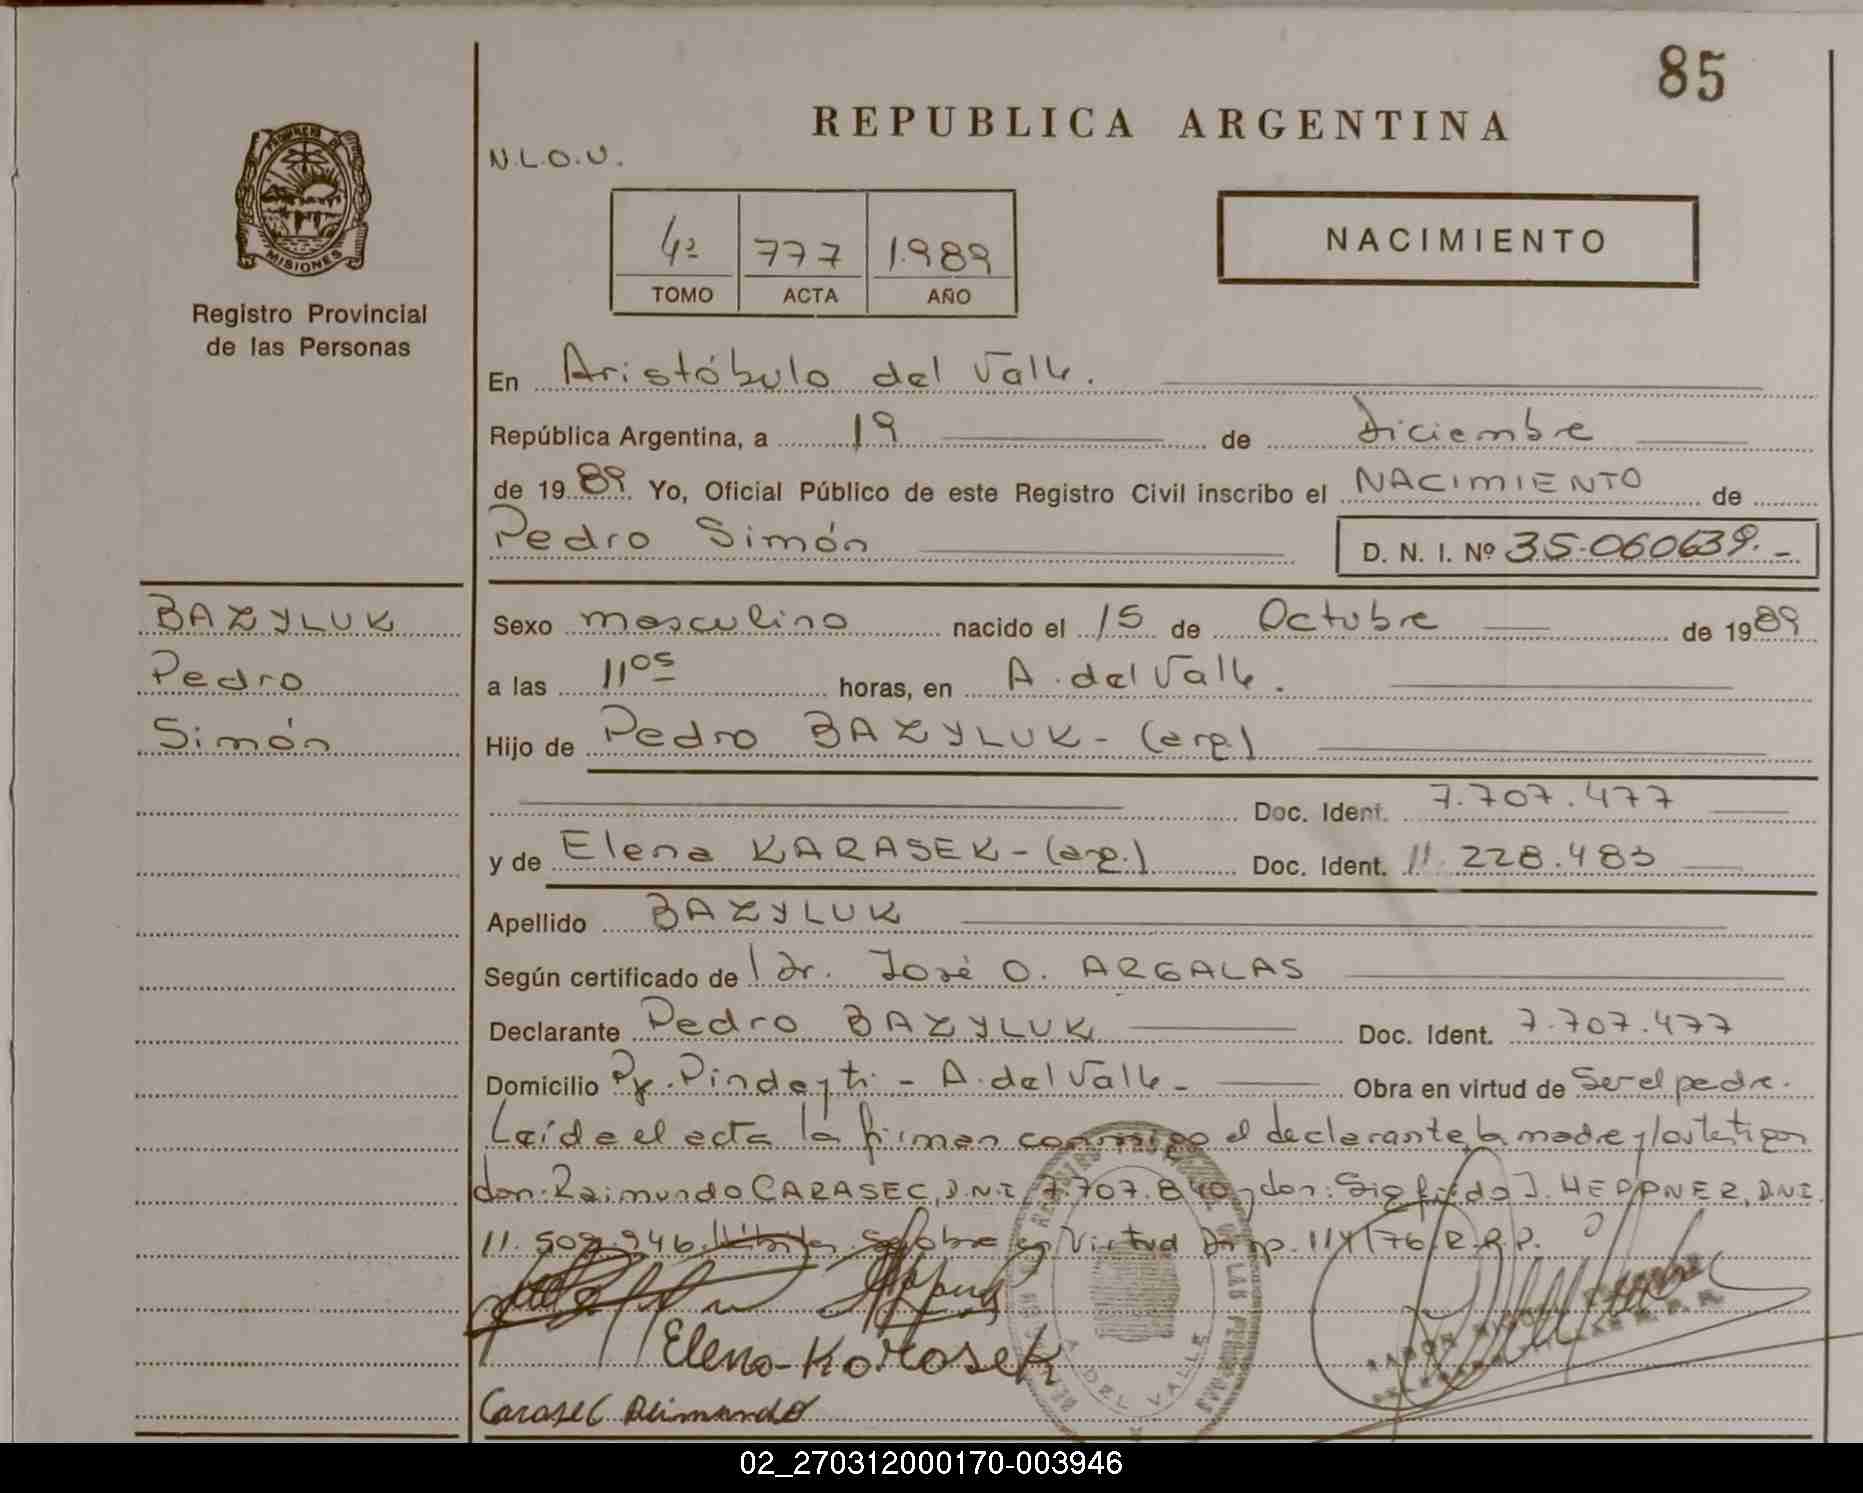 85
REPUBLICA ARGENTINA
N.L.O.U.
MISIONES
Registro Provincial
de las Personas
4º 777 1.989
TOMO ACTA AÑO
NACIMIENTO
En Aristóbulo del Valle.
República Argentina, a 19 de Diciembre
de 1989. Yo, Oficial Público de este Registro Civil inscribo el NACIMIENTO de
Pedro Simón D. N. I. Nº 35.060639.-
BAZYLUK
Pedro
Simón
Sexo masculino nacido el 15 de Octubre de 1989
a las 11 05 horas, en A. del Valle.
Hijo de Pedro BAZYLUK - (arg.)
Doc. Ident. 7.707.477
y de Elena KARASEK - (arg.) Doc. Ident. 11.228.483
Apellido BAZYLUK
Según certificado de Dr. José O. ARGALAS
Declarante Pedro BAZYLUK Doc. Ident. 7.707.477
Domicilio Pindayti - A. del Valle - Obra en virtud de Ser el padre.
Leída el acta la firman conmigo el declarante, la madre y los testigos
don: Raimundo CARASEC, D.N.I. 7.707.840 y don: Sigfrido J. HEPPNER, D.N.I.
11.509.946. obra en virtud R.P.P.
Elena Korosek
Carasec Reimundo
A DEL VALLE
02_270312000170-003946